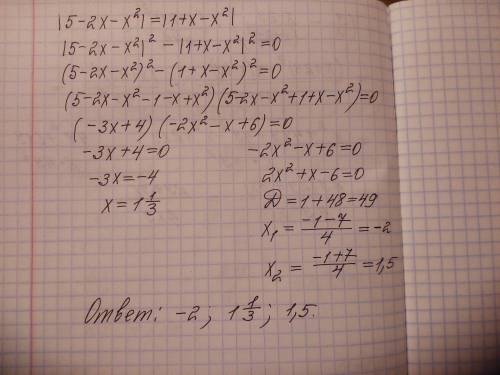 |5-2x-x²|=|1+x-x²|
|5-2x-x²|² -|1+x-x²|²=0
(5-2x-x²)²-(1+x-x²)²=0
(5-2x-x²-1-x+x²)(5-2x-x²+1+x-x²)=0
(-3x+4)(-2x²-x+6)=0
-3x+4=0
-3x=-4
x=1 1/3
-2x²-x+6=0
2x²+x-6=0
D=1+48=49
x₁ = (-1-7)/4 =-2
x₂ = (-1+7)/4 =1,5
Ответ: -2; 1 1/3; 1,5.